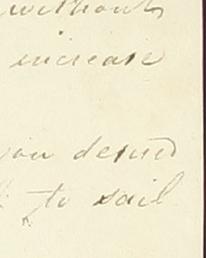 without
increase
you desired
to sail